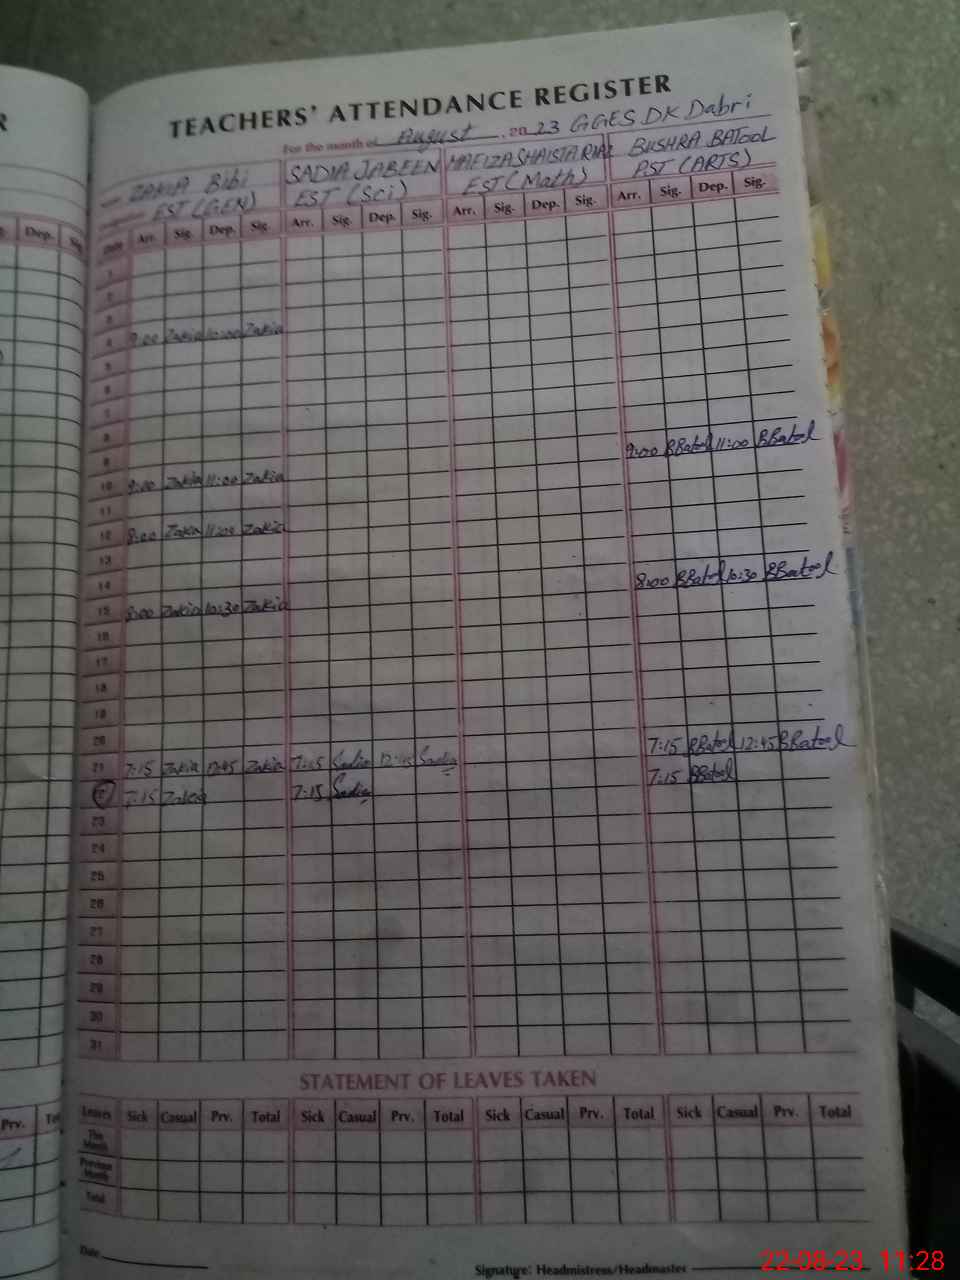 R
TEACHERS' ATTENDANCE REGISTER
For the month of August 2023 GGES DK Dabri
ZAKIA Bibi SADIA JABEEN HAFIZA SHAISTA RIAZ BUSHRA BATOOL
EST (GEN) EST (Sci) EST (Math) PST (ARTS)
Dep. Date Arr. Sig. Dep. Sig. Arr. Sig. Dep. Sig. Arr. Sig. Dep. Sig. Arr. Sig. Dep. Sig.
1
2
3
4 9:00 Zakia 10:00 Zakia
5
6
7
8
9 9:00 BBatool 11:00 BBatool
10 9:00 Zakia 11:00 Zakia
11
12 8:00 Zakia 11:00 Zakia
13
14 8:00 BBatool 10:30 BBatool
15 8:00 Zakia 10:30 Zakia
16
17
18
19
20
21 7:15 Zakia 12:45 Zakia 7:15 Sadia 12:45 Sadia 7:15 BBatool 12:45 BBatool
22 7:15 Zakia 7:15 Sadia 7:15 BBatool
23
24
25
26
27
28
29
30
31
STATEMENT OF LEAVES TAKEN
Prv. Leaves Sick Casual Prv. Total Sick Casual Prv. Total Sick Casual Prv. Total Sick Casual Prv. Total
This Month
Previous Month
Total
Date
Signature: Headmistress/Headmaster
22-08-23 11:28